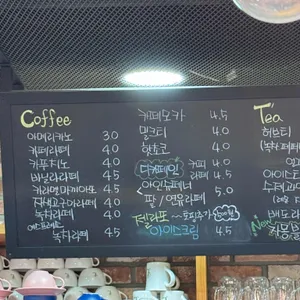 Coffee
아메리카노 3.0
카페라떼 4.0
카푸치노 4.0
바닐라라떼 4.5
카라멜마끼아또 4.5
자색고구마라떼 4.0
녹차라떼 4.0
에스프레소
녹차라떼 4.5
카페모카 4.5
밀크티 4.0
핫초코 4.0
디카페인 커피 4.0
라떼 4.5
아인슈페너 5.0
팥/연유라떼
젤라또
아이스크림 4.5
Tea
허브티
New